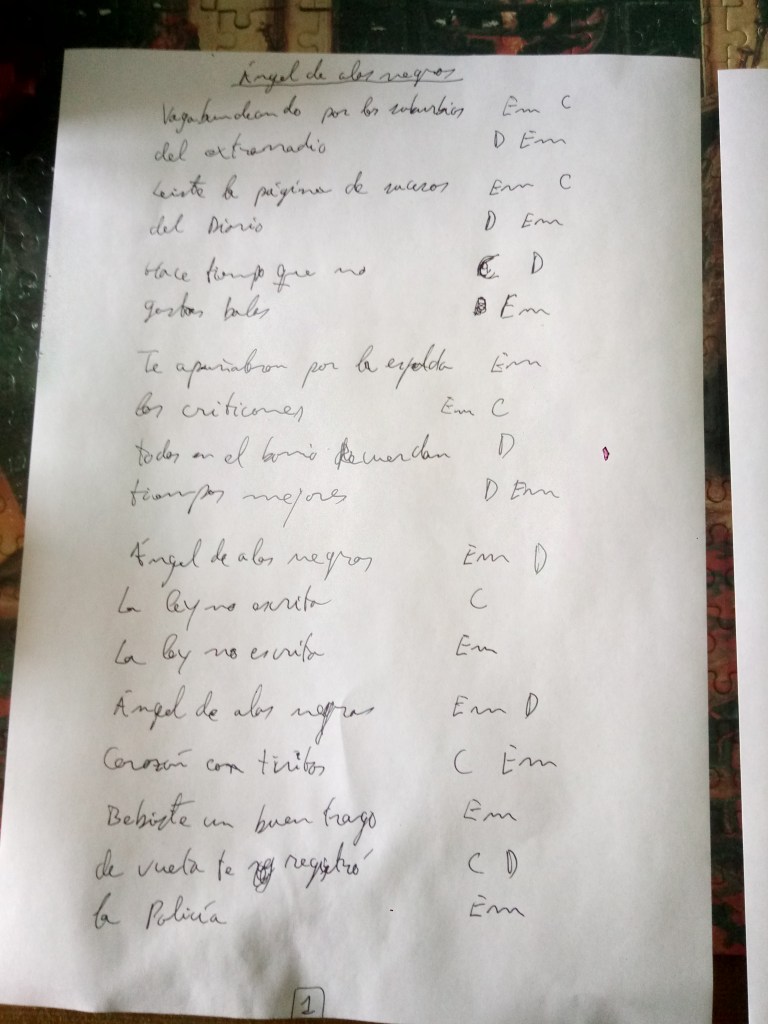 Ángel de alas negras
Vagabundeando por los suburbios Em C
del extrarradio D Em
Leiste la página de sucesos Em C
del Diario D Em
Hace tiempo que no C D
gastas balas Em
Te apuñalaron por la espalda Em
los criticones Em C
todos en el barrio recuerdan D
tiempos mejores D Em
Ángel de alas negras Em D
La ley no escrita C
La ley no escrita Em
Ángel de alas negras Em D
Corazón con tiritas C Em
Bebiste un buen trago Em
de vuelta te registró C D
la Policía Em
1